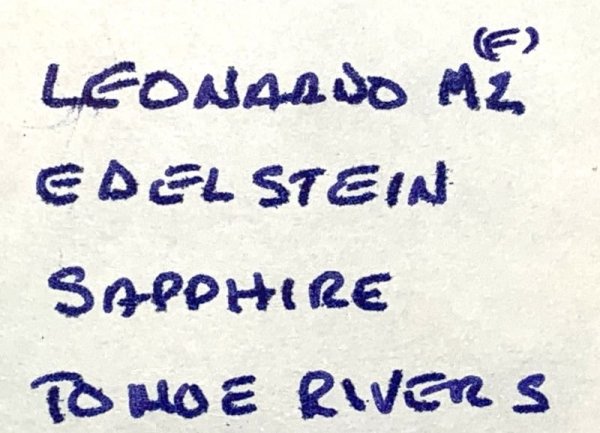 LEONARDO MZ (F)
EDELSTEIN
SAPPHIRE
TOMOE RIVER S